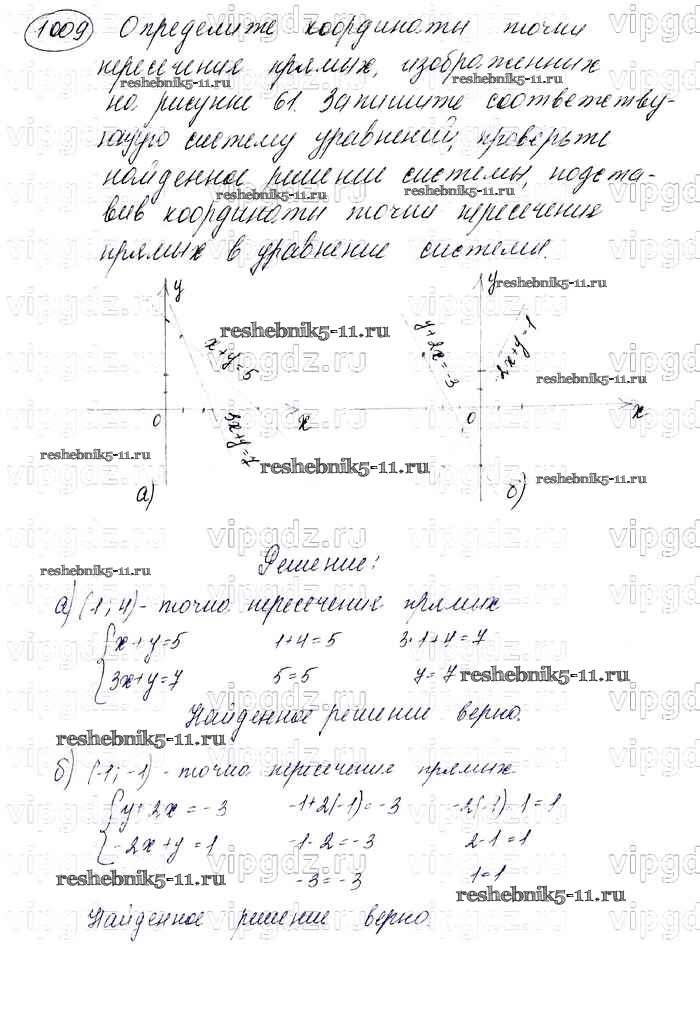 1009 Определите координаты точки
пересечения прямых, изображенных
на рисунке 61. Запишите соответству-
ющую систему уравнений, проверьте
найденное решение системы, подста-
вив координаты точки пересечения
прямых в уравнение системы.
y
x+y=5
0
x
3x+y=7
а)
y
y+2x=-3
-2x+y=1
0
x
б)
Решение:
а) (1; 4) - точка пересечения прямых
x+y=5 1+4=5 3·1+4=7
3x+y=7 5=5 y=7
Найденное решение верно.
б) (-1; -1) - точка пересечения прямых.
y+2x=-3 -1+2(-1)=-3 -2(-1)-1=1
-2x+y=1 -1-2=-3 2-1=1
-3=-3 1=1
Найденное решение верно.
reshebnik5-11.ru
vipgdz.ru